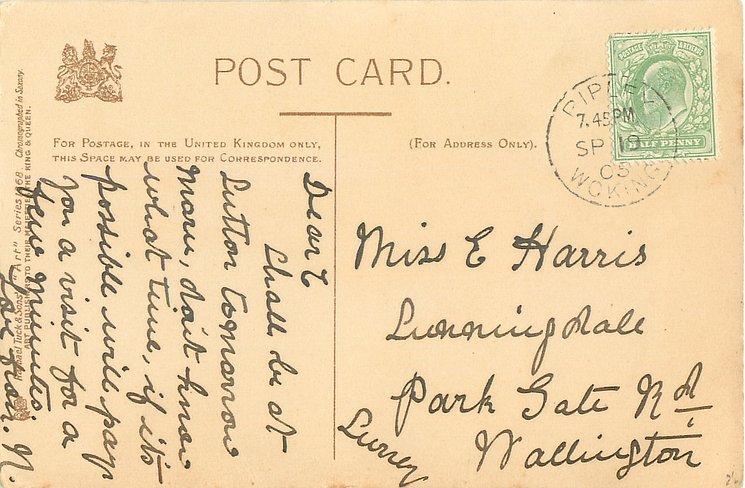 POST CARD.
FOR POSTAGE, IN THE UNITED KINGDOM ONLY,
THIS SPACE MAY BE USED FOR CORRESPONDENCE.
(FOR ADDRESS ONLY).
POSTAGE & REVENUE
HALF PENNY
RIPLEY
7.45PM
SP 19
05
WOKING
Dear E
Shall be at
Sutton tomorrow
morn, don't know
what time, if it's
possible will pay
you a visit for a
few minutes
Love from. N.
Miss E Harris
Sunningdale
Park Gate Rd
Wallington
Surrey
Raphael Tuck & Sons' "Art" Series 1368 Chromographed in Saxony.
ART PUBLISHERS TO THEIR MAJESTIES THE KING & QUEEN.